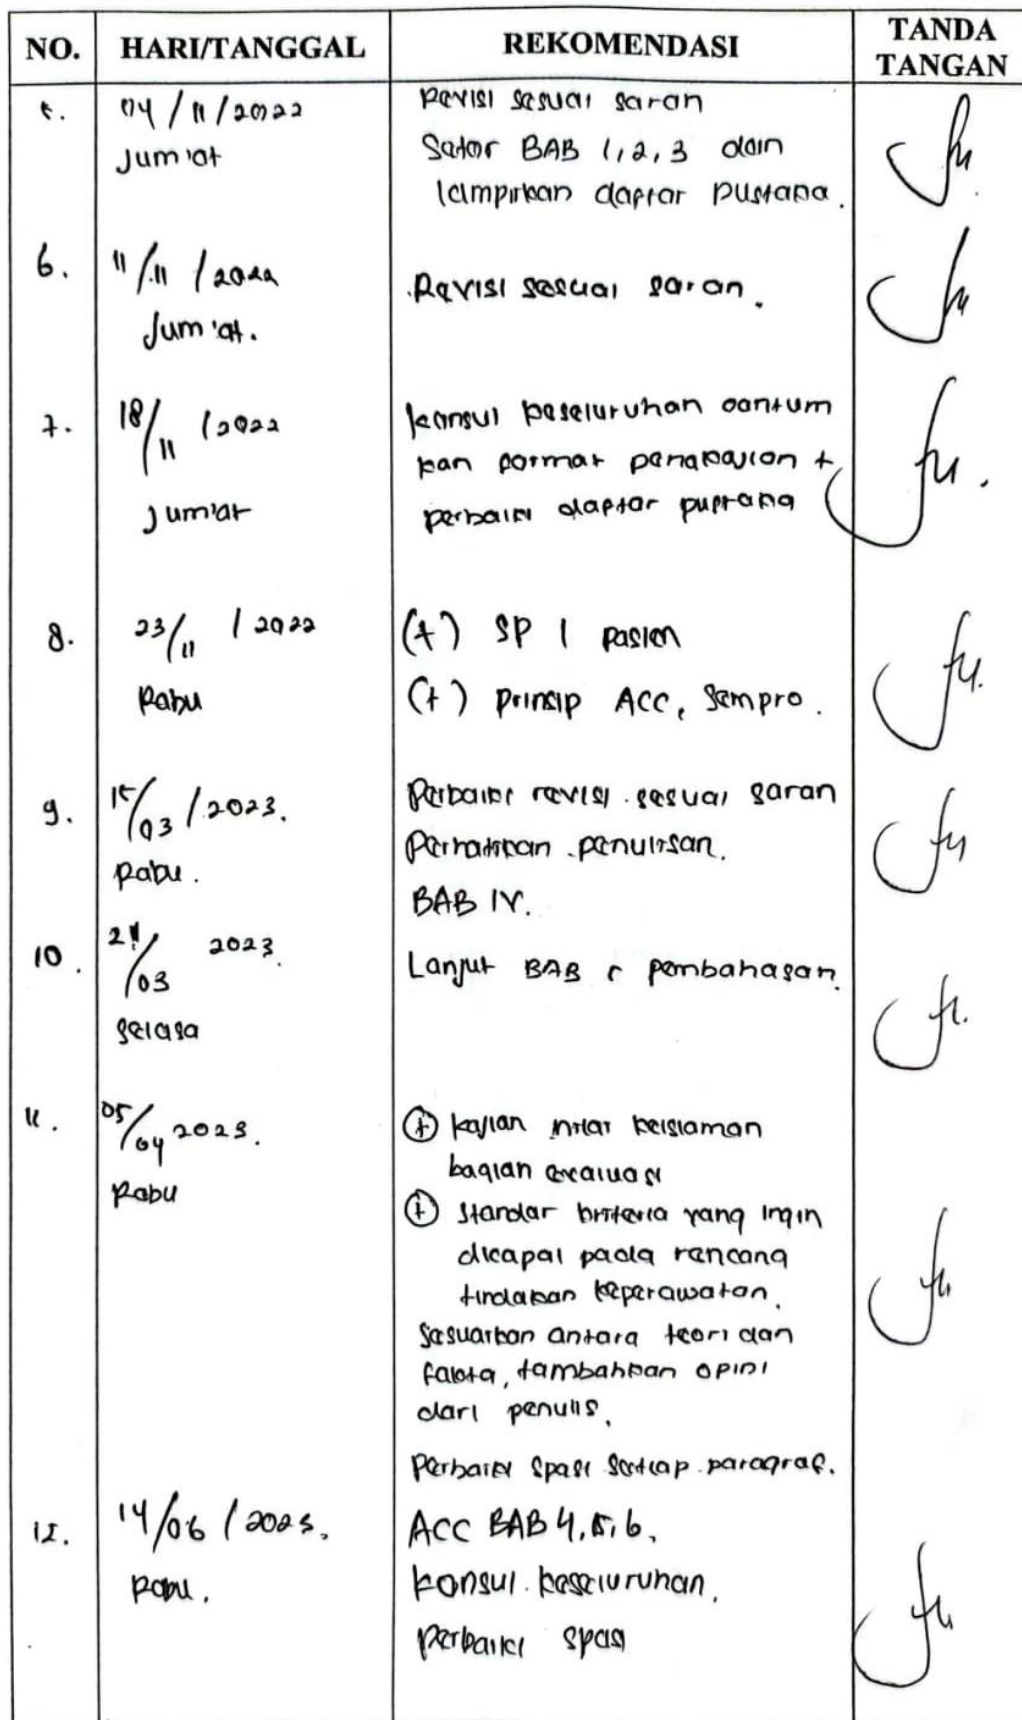 NO. HARI/TANGGAL REKOMENDASI TANDA TANGAN
5. 04/11/2022 Revisi sesuai saran
Jum'at Setor BAB 1,2,3 dan
lampirkan daftar pustaka.
6. 11/11/2022 Revisi sesuai saran.
Jum'at.
7. 18/11/2022 konsul keseluruhan cantum
kan format pengkajian +
Jum'at perbaiki daftar pustaka
8. 23/11/2022 (+) SP 1 pasien
Rabu (+) Prinsip ACC, Sempro.
9. 15/03/2023. Perbaiki revisi sesuai saran
Perhatikan penulisan.
Rabu. BAB IV.
10. 21/03 2023. Lanjut BAB 5 pembahasan.
Selasa
11. 05/04 2023. (+) kajian nilai keislaman
bagian evaluasi
Rabu (+) Standar kriteria yang ingin
dicapai pada rancang
tindakan keperawatan.
Sesuaikan antara teori dan
fakta, tambahkan opini
dari penulis.
Perbaiki spasi setiap paragraf.
12. 14/06/2023. ACC BAB 4,5,6.
Rabu. konsul keseluruhan.
Perbaiki spasi